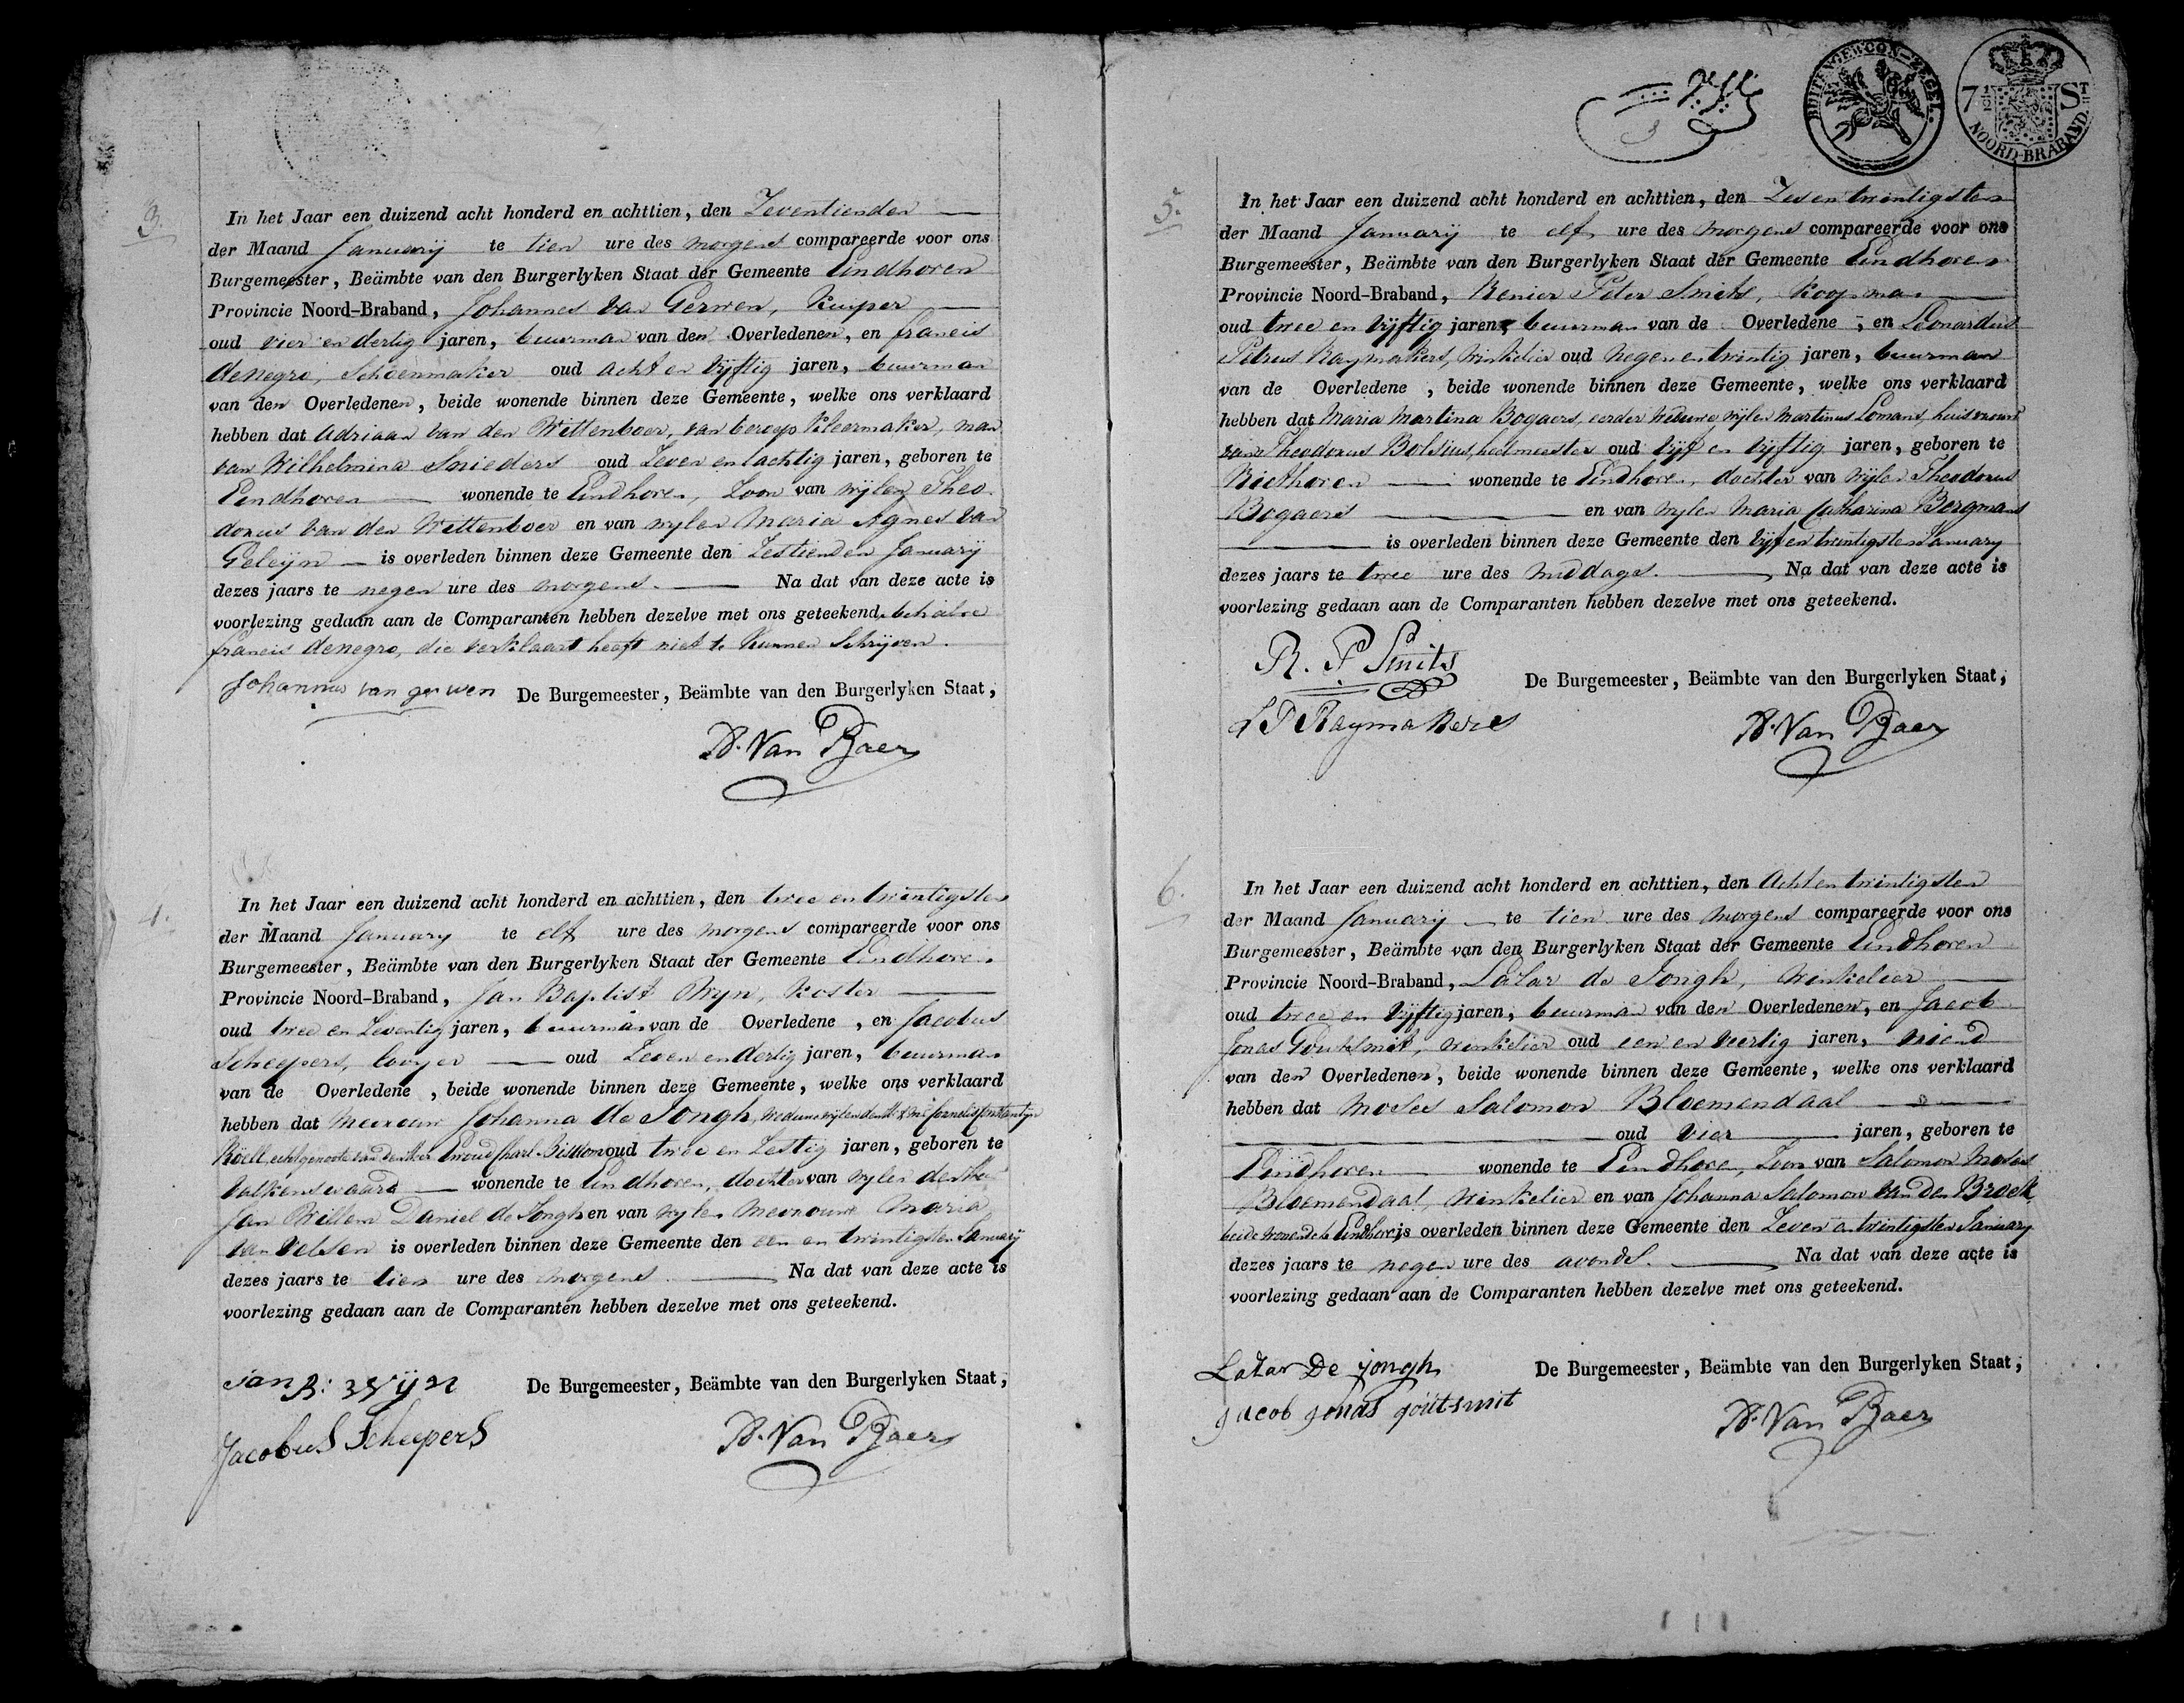 3.
In het Jaar een duizend acht honderd en achttien, den Zeventienden
der Maand Januarij te tien ure des morgens compareerde voor ons
Burgemeester, Beämbte van den Burgerlyken Staat der Gemeente Eindhoven
Provincie Noord-Braband, Johannes van Gerwen, Kuiper
oud vier en dertig jaren, buurman van den Overledenen, en francis
denegro, Schoenmaker oud acht en vyftig jaren, buurman
van den Overledenen, beide wonende binnen deze Gemeente, welke ons verklaard
hebben dat Adriaan van den Wittenboer, van beroep Kleermaker, man
van Wilhelmina Snieders oud Zeven en tachtig jaren, geboren te
Eindhoven wonende te Eindhoven, Zoon van wylen Theo-
dorus van den Wittenboer en van wylen Maria Agnes van
Geleijn is overleden binnen deze Gemeente den Zestienden Januarij
dezes jaars te negen ure des morgens. Na dat van deze acte is
voorlezing gedaan aan de Comparanten hebben dezelve met ons geteekend, behalve
francis denegro, die verklaart heeft niet te kunnen Schrijven.
Johannus van gerwen De Burgemeester, Beämbte van den Burgerlyken Staat,
Van Baer
4.
In het Jaar een duizend acht honderd en achttien, den twee en twintigsten
der Maand January te elf ure des morgens compareerde voor ons
Burgemeester, Beämbte van den Burgerlyken Staat der Gemeente Eindhoven
Provincie Noord-Braband, Jan Baptist Wyn, Koster
oud twee en Zeventig jaren, buurman van de Overledene, en Jacobus
Scheepers, looyer oud Zeven en dertig jaren, buurman
van de Overledene, beide wonende binnen deze Gemeente, welke ons verklaard
hebben dat Mevrouw Johanna de Jongh, weduwe wylen den Cornelis Constantyn
Röell, echtgenoote van den Heer Charl. oud twee en Zestig jaren, geboren te
Valkenswaard wonende te Eindhoven, dochter van wylen den Heer
Jan Willem Daniel de Jongh en van wylen Mevrouwe Maria
van Velsen is overleden binnen deze Gemeente den een en twintigsten January
dezes jaars te tien ure des morgens. Na dat van deze acte is
voorlezing gedaan aan de Comparanten hebben dezelve met ons geteekend.
Jan B: Wijn De Burgemeester, Beämbte van den Burgerlyken Staat,
Jacobus Scheepers Van Baer
BUITENGEWOON-ZEGEL.
7 1/2 ST
NOORD-BRABAND.
5.
In het Jaar een duizend acht honderd en achttien, den Zeven twintigsten
der Maand Januarij te elf ure des morgens compareerde voor ons
Burgemeester, Beämbte van den Burgerlyken Staat der Gemeente Eindhoven
Provincie Noord-Braband, Renier Peter Smits, Koopman
oud twee en vyftig jaren, buurman van de Overledene, en Leonardus
Petrus Raymakers, Winkelier oud negen en twintig jaren, buurman
van de Overledene, beide wonende binnen deze Gemeente, welke ons verklaard
hebben dat Maria Martina Bogaers, eerder Weduwe wylen Martinus Lomans, huisvrouw
van Theodorus Bolsius, heelmeester oud vyf en vyftig jaren, geboren te
Riethoven wonende te Eindhoven, dochter van wylen Theodorus
Bogaers en van wylen Maria Catharina Bergmans
is overleden binnen deze Gemeente den vyf en twintigsten January
dezes jaars te twee ure des middags. Na dat van deze acte is
voorlezing gedaan aan de Comparanten hebben dezelve met ons geteekend.
R. P Smits
De Burgemeester, Beämbte van den Burgerlyken Staat,
L P Raymakers Van Baer
6.
In het Jaar een duizend acht honderd en achttien, den Acht en twintigsten
der Maand Januarij te tien ure des morgens compareerde voor ons
Burgemeester, Beämbte van den Burgerlyken Staat der Gemeente Eindhoven
Provincie Noord-Braband, Lazar de Jongh, Winkelier
oud twee en vyftig jaren, buurman van den Overledenen, en Jacob
Jonas Goutsmit, winkelier oud een en veertig jaren, vriend
van den Overledenen, beide wonende binnen deze Gemeente, welke ons verklaard
hebben dat Moses Salomon Bloemendaal
oud vier jaren, geboren te
Eindhoven wonende te Eindhoven, Zoon van Salomon Moses
Bloemendaal, Winkelier en van Johanna Salomon van den Broek,
beide wonende te Eindhoven is overleden binnen deze Gemeente den Zeven en twintigsten January
dezes jaars te negen ure des avonds. Na dat van deze acte is
voorlezing gedaan aan de Comparanten hebben dezelve met ons geteekend.
Lazar De jongh De Burgemeester, Beämbte van den Burgerlyken Staat,
jacob jonas goutsmit Van Baer